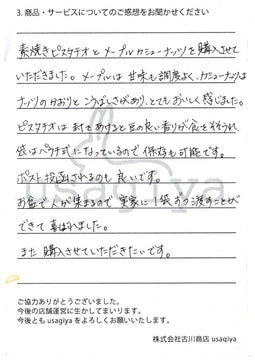 3. 商品・サービスについてのご感想をお聞かせください
素焼きピスタチオとメープルカシューナッツを購入させて
いただきました。メープルは甘味も調度よく、カシューナッツは
ナッツのかおりとこうばしさがあり、とてもおいしく感じました。
ピスタチオは封をあけると豆の良い香りが食をそそられ
袋はパウチ式になっているので保存も可能です。
ポスト投函されるのも良いです。
お盆で人が集まるので実家に1袋おつ渡すことが
できて喜ばれました。
また購入させていただきたいです。
usagiya
ご協力ありがとうございました。
今後の店舗運営に生かしてまいります。
今後とも usagiya をよろしくお願いいたします。
株式会社古川商店 usagiya